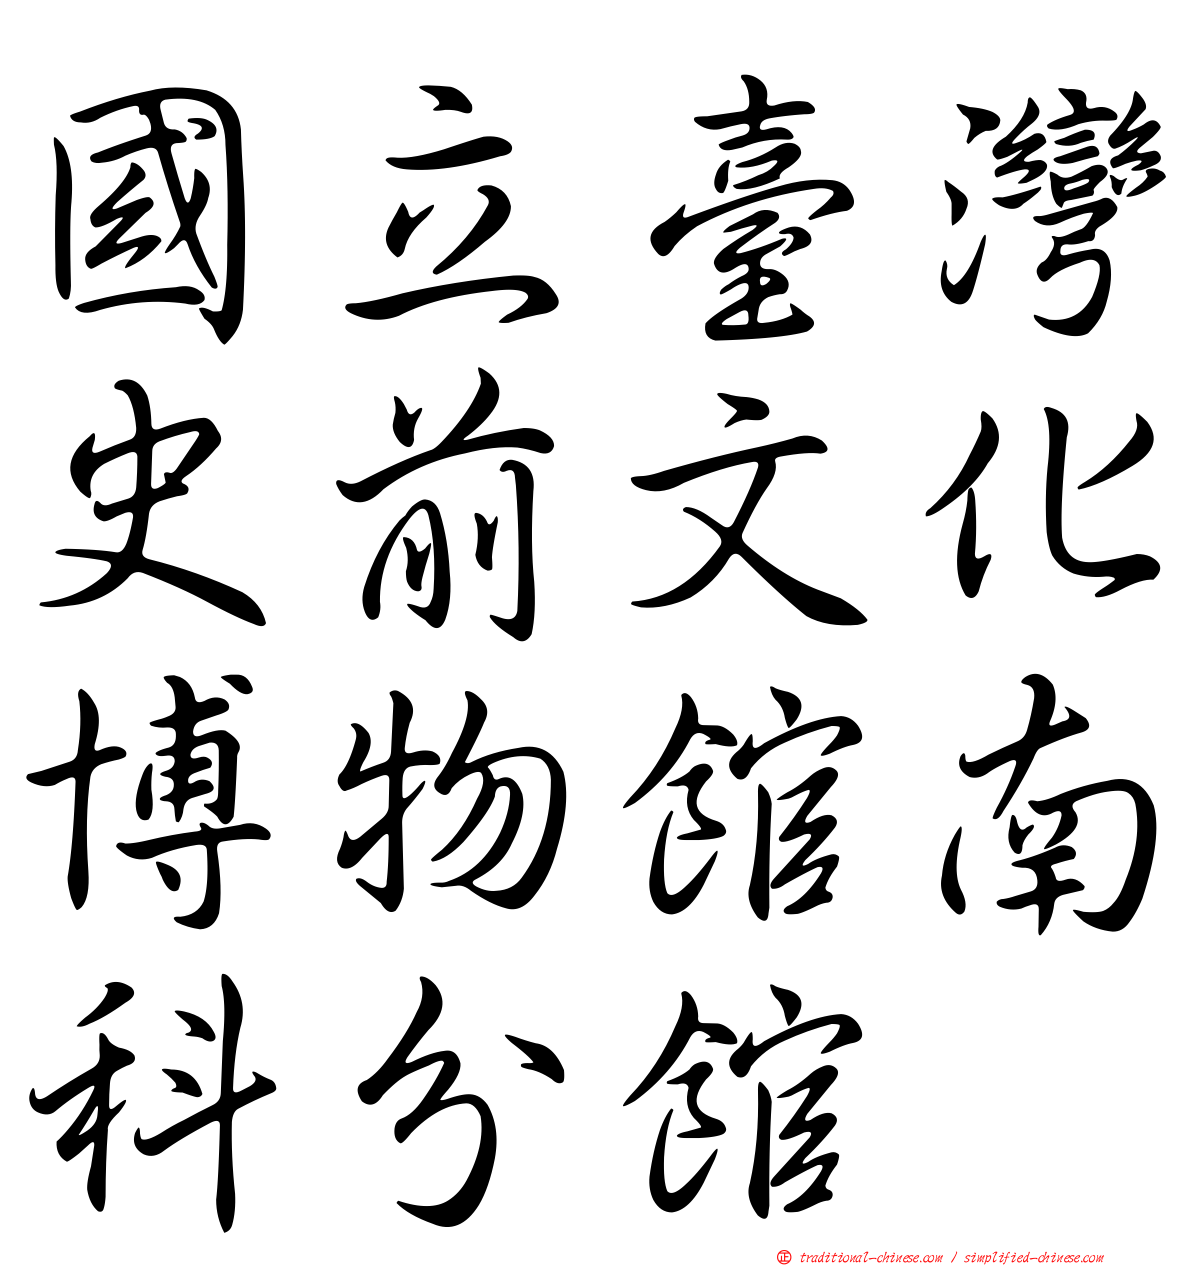 國立臺灣
史前文化
博物館南
科分館
㊣ traditional-chinese.com / simplified-chinese.com